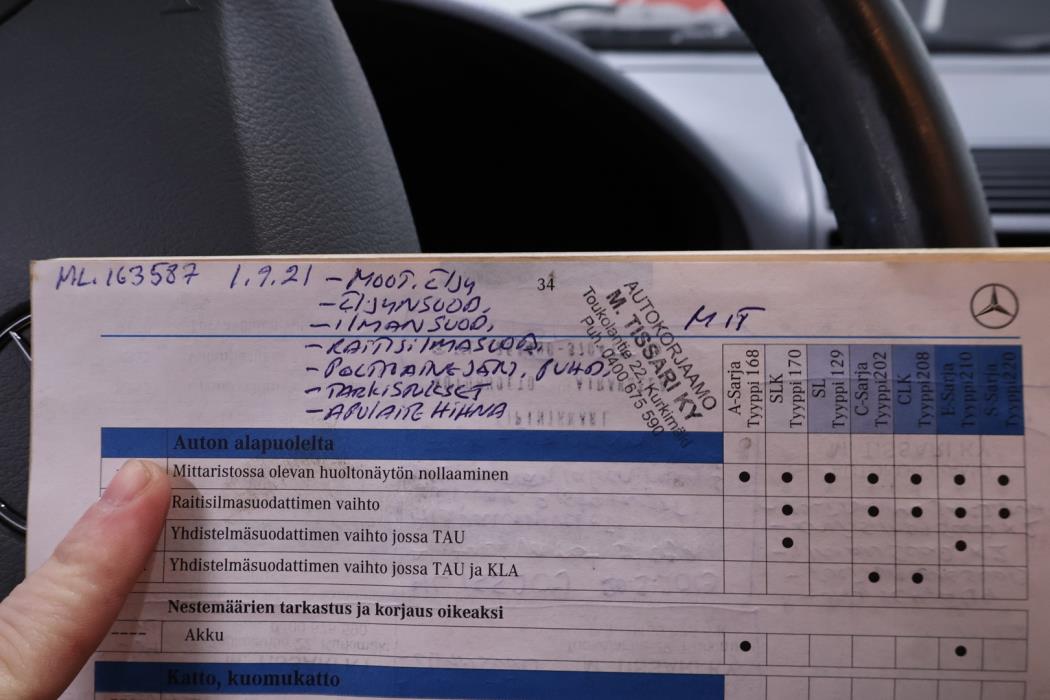 ML. 163587 1.9.21 - MOOT. ÖLJY
34
- ÖLJYNSUOD.
- ILMANSUOD.
- RAITISILMASUOD.
- POLTTAINEJÄRJ. PUHD.
- TARKISTUKSET
- APULAITE HIHNA
AUTOKORJAAMO
M. TISSARI KY
Toukolantie 22, Kurkimäki
Puh. 0400 675 590
MIT
A-Sarja Tyyppi 168
SLK Tyyppi 170
SL Tyyppi 129
C-Sarja Tyyppi 202
CLK Tyyppi 208
E-Sarja Tyyppi 210
S-Sarja Tyyppi 220
Auton alapuolelta
Mittaristossa olevan huoltonäytön nollaaminen
Raitisilmasuodattimen vaihto
Yhdistelmäsuodattimen vaihto jossa TAU
Yhdistelmäsuodattimen vaihto jossa TAU ja KLA
Nestemäärien tarkastus ja korjaus oikeaksi
---- Akku
Katto, kuomukatto